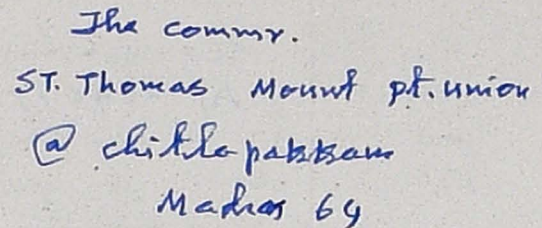 The commr.
ST. Thomas Mount pt. union
@ chitlapakkam
Madras 64